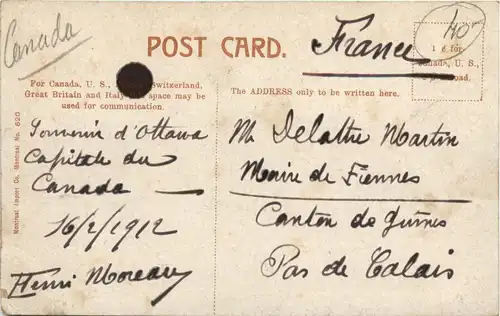 Canada
POST CARD.
France
140
1 c for
Canada, U. S.,
road.
For Canada, U. S., Switzerland,
Great Britain and Italy space may be
used for communication.
The ADDRESS only to be written here.
Souvenir d'Ottawa
Capitale du
Canada
16/2/1912
Henri Moreau
Mr Delattre Martin
Maire de Fiennes
Canton de Guines
Pas de Calais
Montreal Import Co. Montreal No. 620